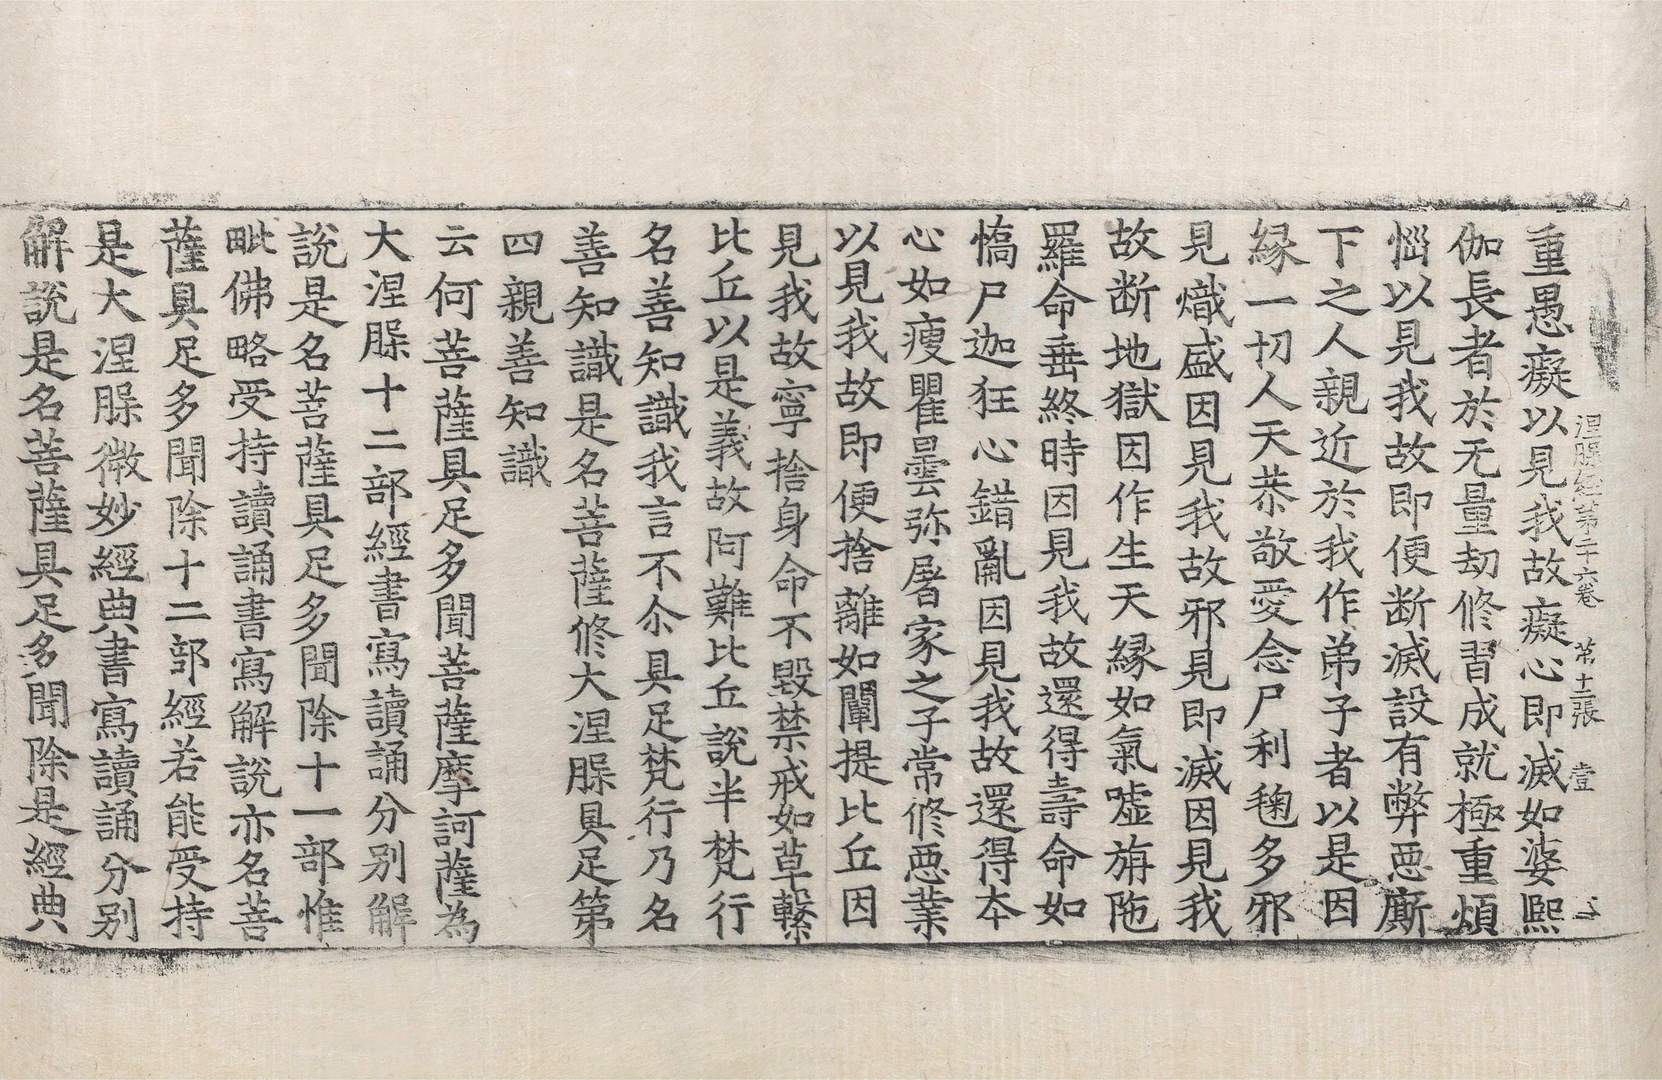 涅槃経第二十六卷　第十二張　壹
重愚癡以見我故癡心即滅如婆熙
伽長者於无量劫修習成就極重煩
惱以見我故即便断滅設有弊惡廝
下之人親近於我作弟子者以是因
縁一切人天恭敬愛念尸利毱多邪
見熾盛因見我故邪見即滅因見我
故断地獄因作生天縁如氣嘘旃陁
羅命垂終時因見我故還得壽命如
憍尸迦狂心錯亂因見我故還得夲
心如瘦瞿曇弥屠家之子常修惡業
以見我故即便捨離如闡提比丘因
見我故寧捨身命不毀禁戒如草繫
比丘以是義故阿難比丘說半梵行
名善知識我言不尒具足梵行乃名
善知識是名菩薩修大涅槃具足第
四親善知識
云何菩薩具足多聞菩薩摩訶薩為
大涅槃十二部經書寫讀誦分别解
說是名菩薩具足多聞除十一部惟
毗佛略受持讀誦書寫解說亦名菩
薩具足多聞除十二部經若能受持
是大涅槃微妙經典書寫讀誦分别
解說是名菩薩具足多聞除是經典